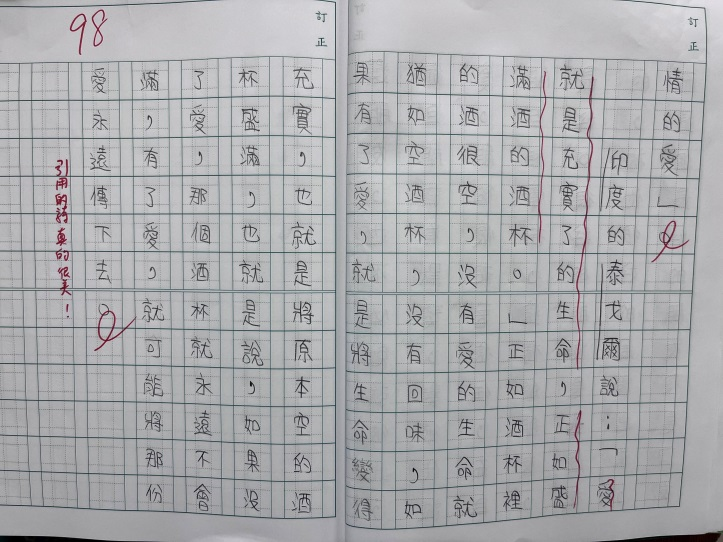 訂正
情的愛」。
印度的泰戈爾說：「愛
就是充實了的生命，正如盛
滿酒的酒杯。」正如酒杯裡
的酒很空，沒有愛的生命就
猶如空酒杯，沒有回味，如
果有了愛，就是將生命變得
訂正
充實，也就是將原本空的酒
杯盛滿，也就是說，如果沒
了愛，那個酒杯就永遠不會
滿，有了愛，就可能將那份
愛永遠傳下去。
98
引用的詩真的很美！